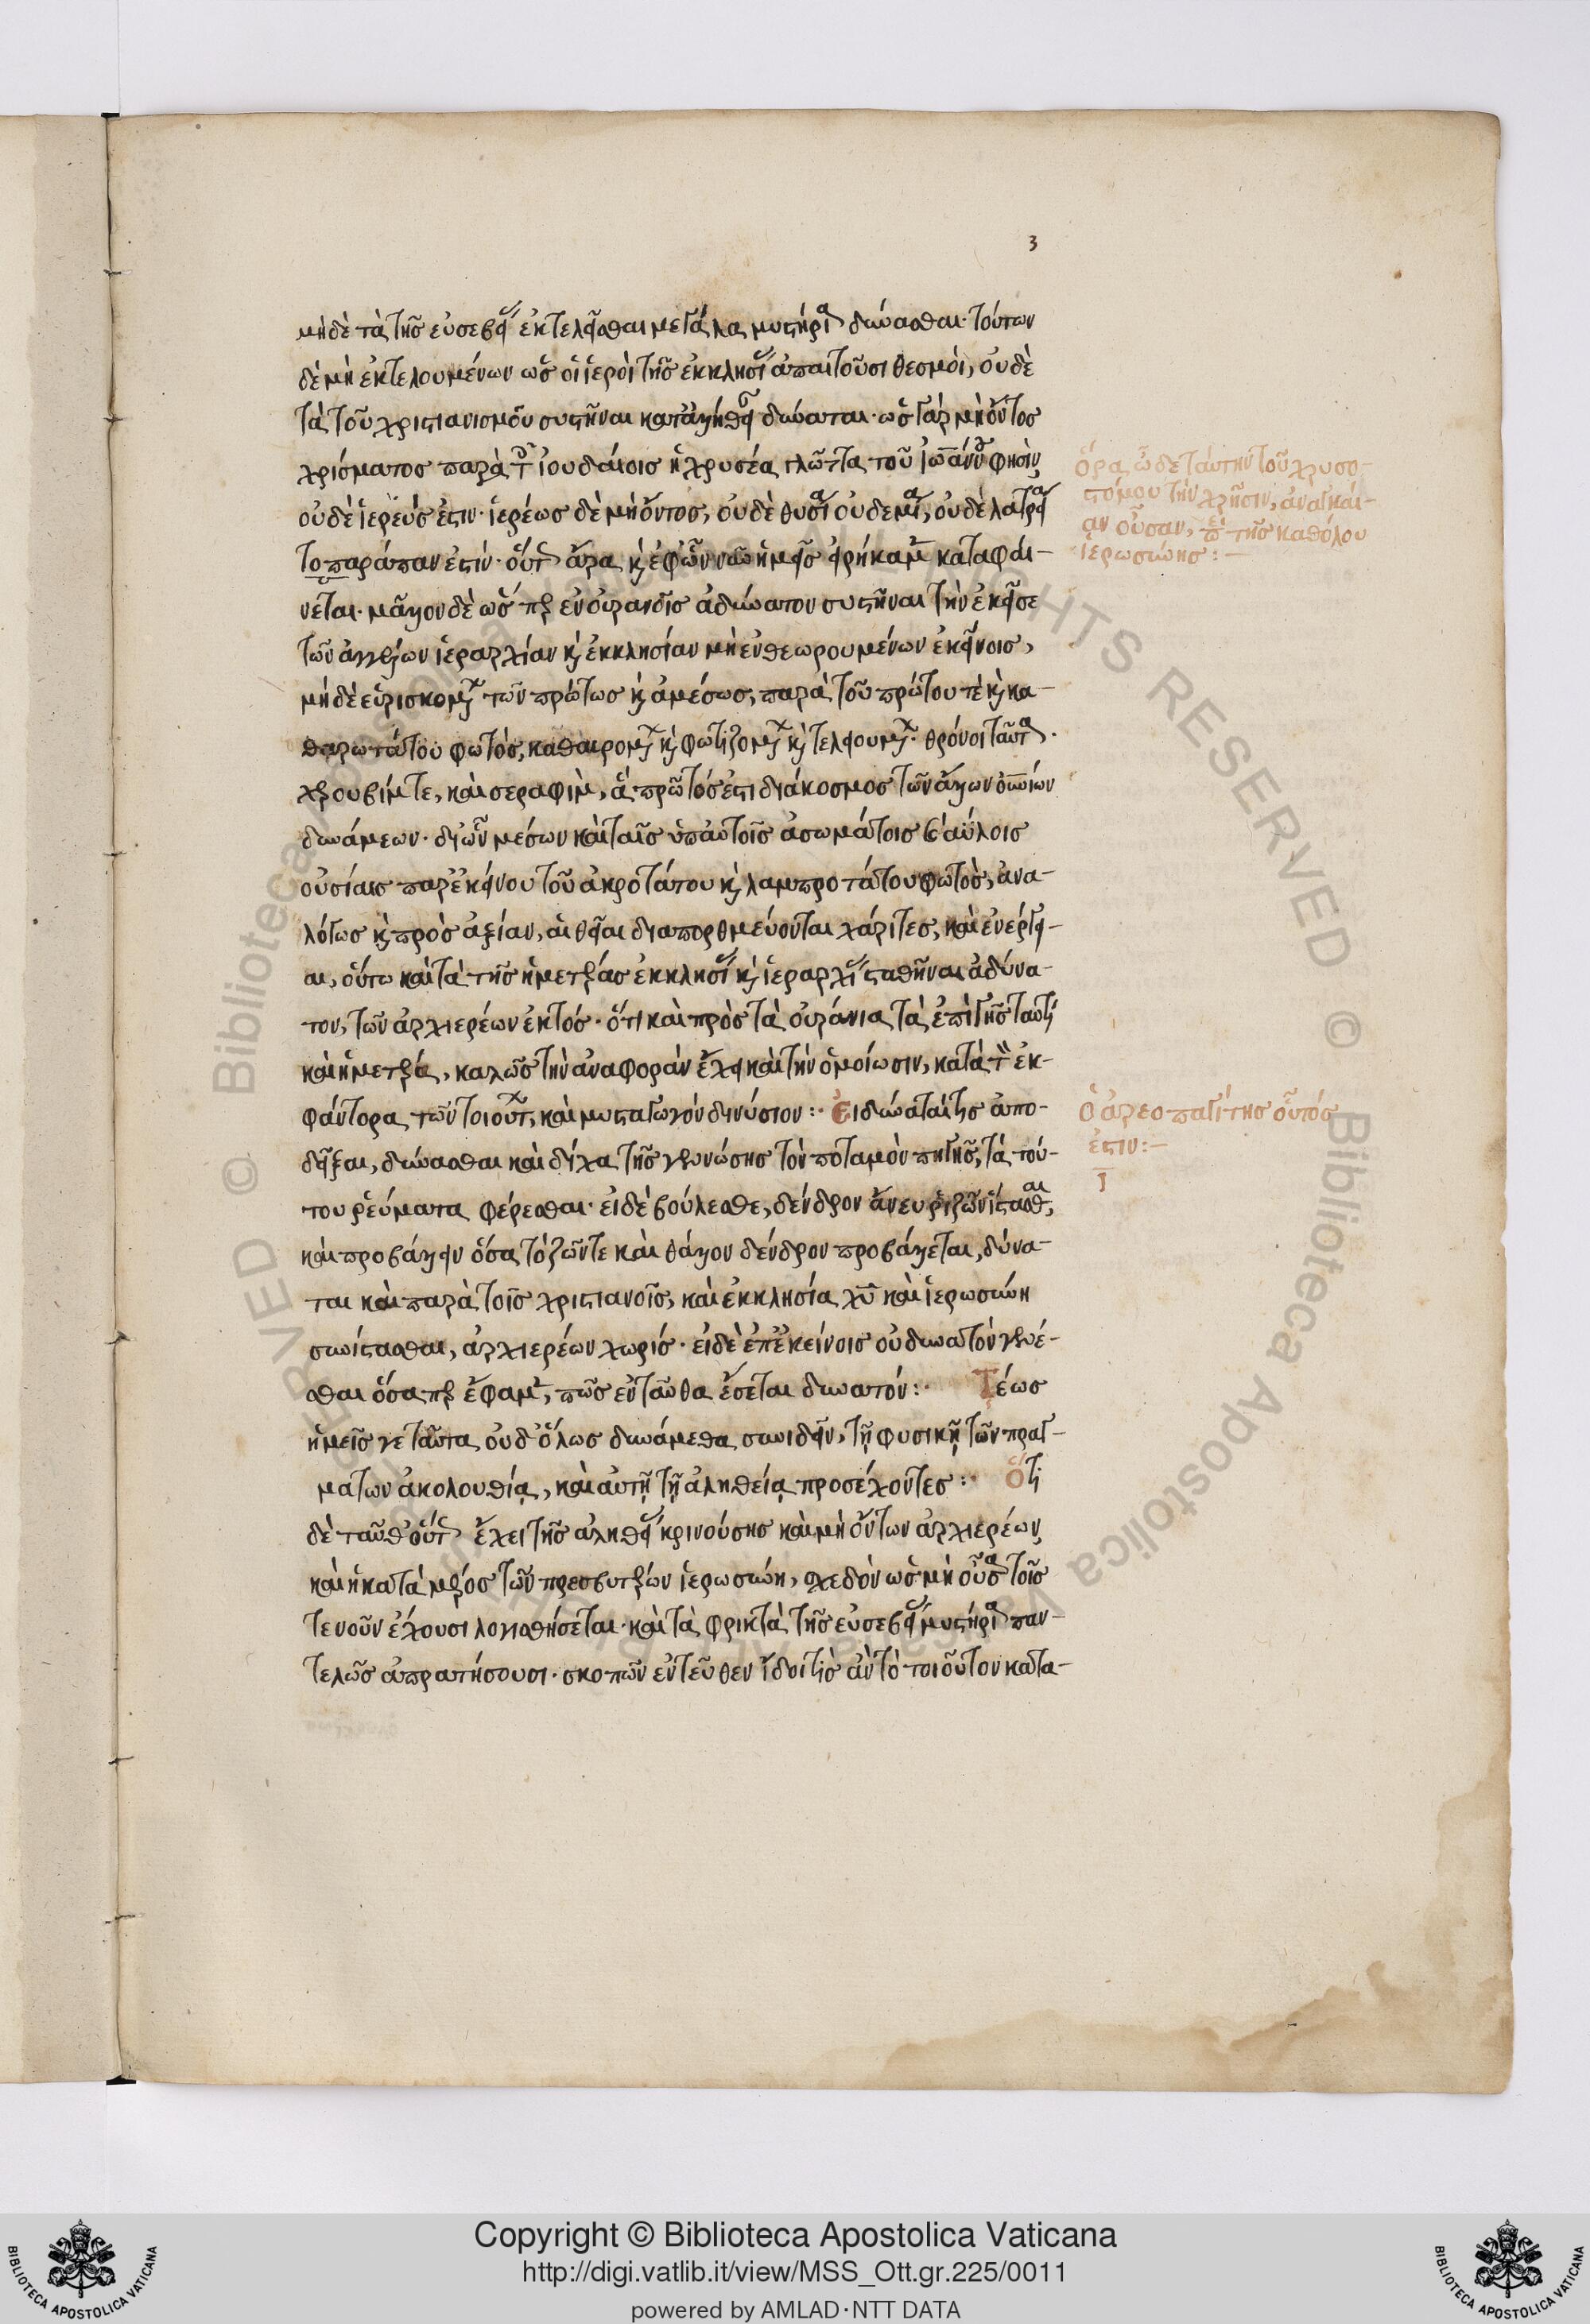 3
μηδὲ τὰ τῆς εὐσεβεί(ας) ἐκτελεῖσθαι μεγάλα μυστήρια δύνασθαι· τούτων
δὲ μὴ ἐκτελουμένων ὡς οἱ ἱεροὶ τῆς ἐκκλησί(ας) ἀπαιτοῦσι θεσμοὶ, οὐδὲ
τὰ τοῦ χριστιανισμοῦ συστῆναι κατ' ἀλήθειαν δύναται· ὡς γὰρ μὴ ὄντος
χρίσματος παρὰ τοῖς ἰουδαίοις ἡ χρυσέα γλῶττα τοῦ ἰωάννου φησὶν,
οὐδὲ ἱερεύς ἐστιν· ἱερέως δὲ μὴ ὄντος, οὐδὲ θυσία οὐδεμία, οὐδὲ λατρεία
το παράπαν ἐστίν· οὕτως ἄρα κ(αὶ) ἐφ' ὧν νῦν ἡμεῖς εἰρήκαμεν καταφαί-
νεται· μᾶλλον δὲ ὥσπερ ἐν οὐρανοῖς ἀδύνατον συστῆναι τὴν ἐκεῖσε
τῶν ἀγγέλων ἱεραρχίαν κ(αὶ) ἐκκλησίαν μὴ ἐνθεωρουμένων ἐκείνοις,
μηδὲ εὑρισκομένων τῶν πρώτως κ(αὶ) ἀμέσως, παρὰ τοῦ πρώτου τὲ κ(αὶ) κα-
θαρωτάτου φωτός, καθαιρομένων κ(αὶ) φωτιζομένων κ(αὶ) τελειουμένων· θρόνοι ταῦτα·
χερουβίμ τε, καὶ σεραφὶμ, ἃ πρῶτός ἐστι διάκοσμος τῶν ἄλλων οὐρανίων
δυνάμεων· δι' ὧν μέσων καὶ ταῖς ὑπ' αὐτοῖς ἀσωμάτοις κ(αὶ) ἀΰλοις
οὐσίαις παρ' ἐκείνου τοῦ ἀκροτάτου κ(αὶ) λαμπροτάτου φωτὸς, ἀνα-
λόγως κ(αὶ) πρὸς ἀξίαν, αἱ θεῖαι διαπορθμεύονται χάριτες, καὶ ἐνέργει-
αι, οὕτω καὶ τὰ τῆς ἡμετέρας ἐκκλησί(ας) κ(αὶ) ἱεραρχί(ας) σταθῆναι ἀδύνα-
τον, τῶν ἀρχιερέων ἐκτός· ὅτι καὶ πρὸς τὰ οὐράνια τὰ ἐπὶ γῆς ταυτὶ
καὶ ἡμετέρα, καλῶς τὴν ἀναφορὰν ἔχει καὶ τὴν ὁμοίωσιν, κατὰ τὸν ἐκ-
φάντορα τῶν τοιούτων, καὶ μυσταγωγόν διονύσιον:· Εἰ δύναταί τις ἀπο-
δεῖξαι, δύνασθαι καὶ δίχα τῆς γεννώσης τὸν ποταμὸν πηγῆς, τὰ τού-
του ῥεύματα φέρεσθαι· εἰ δὲ βούλεσθε, δένδρον ἄνευ ῥιζῶν ἵστασθαι,
καὶ προβάλλειν ὅσα τὸ ζῶν τε καὶ θάλλον δένδρον προβάλλεται, δύνα-
ται καὶ παρὰ τοῖς χριστιανοῖς, καὶ ἐκκλησία χυ καὶ ἱερωσύνη
συνίστασθαι, ἀρχιερέων χωρίς· εἰ δὲ ἐπ' ἐκείνοις οὐ δυνατὸν γενέ-
σθαι ὅσαπερ ἔφαμεν, πῶς ἐνταῦθα ἔσεται δυνατόν:· Τέως
ἡμεῖς γε ταῦτα οὐδ' ὅλως δυνάμεθα συνιδεῖν, τῇ φυσικῇ τῶν πραγ-
μάτων ἀκολουθίᾳ, καὶ αὐτῇ τῇ ἀληθείᾳ προσέχοντες:· Ὅτι
δὲ ταῦθ' οὕτως ἔχει τῆς ἀληθεί(ας) κρινούσης καὶ μὴ ὄντων ἀρχιερέων,
καὶ ἡ κατὰ μέρος τῶν πρεσβυτέρων ἱερωσύνη, σχεδὸν ὡς μὴ οὖσα τοῖς
γε νοῦν ἔχουσι λογισθήσεται· καὶ τὰ φρικτὰ τῆς εὐσεβεί(ας) μυστήρια παν-
τελῶς ἀπρακτήσουσι· σκοπῶν ἐντεῦθεν ἴδοι τὶς ἂν τὸ τοιοῦτον κατα-
ὅρα ὧδε ταύτην τοῦ χρυσο-
στόμου τὴν χρῆσιν, ἀναγκαί-
αν οὖσαν, περὶ τῆς καθόλου
ἱερωσύνης:—
ὁ ἀρεοπαγίτης οὗτός
ἐστιν:—
Copyright © Biblioteca Apostolica Vaticana
http://digi.vatlib.it/view/MSS_Ott.gr.225/0011
powered by AMLAD·NTT DATA
BIBLIOTECA APOSTOLICA VATICANA
BIBLIOTECA APOSTOLICA VATICANA